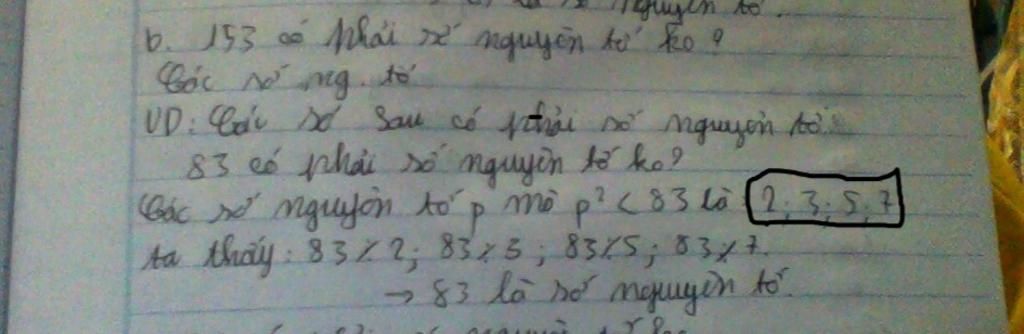 nguyên tố.
b. 153 có phải số nguyên tố ko?
Các số ng. tố
VD: Các số sau có phải số nguyên tố.
83 có phải số nguyên tố ko?
Các số nguyên tố p mà p² < 83 là 2; 3; 5; 7
ta thấy: 83 ⋮̸ 2; 83 ⋮̸ 3; 83 ⋮̸ 5; 83 ⋮̸ 7.
→ 83 là số nguyên tố.